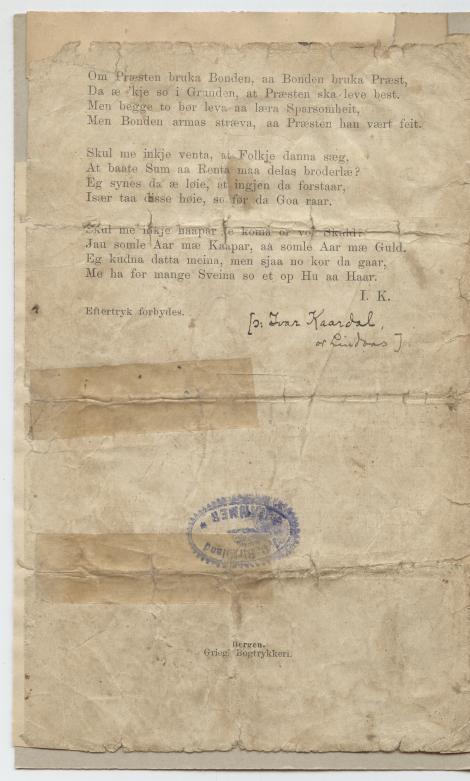 Om Præsten bruka Bonden, aa Bonden bruka Præst,
Da æ 'kje so i Grunden, at Præsten ska leve best.
Men begge to bør leva aa læra Sparsomheit,
Men Bonden armas stræva, aa Præsten han vært feit.
Skul me inkje venta, at Folkje danna sæg,
At baate Sum aa Renta maa delas broderlæ?
Eg synes da æ løie, at ingjen da forstaar,
Især taa disse høie, so før da Goa raar.
Skul me inkje haapar te koma or vor Skuld?
Jau somle Aar mæ Kaapar, aa somle Aar mæ Guld.
Eg kudna datta meina, men sjaa no kor da gaar,
Me ha for mange Sveina so et op Hu aa Haar.
I. K.
Eftertryk forbydes.
[ɔ: Ivar Kaardal,
or Lindaas]
Bergen.
Griegs Bogtrykkeri.